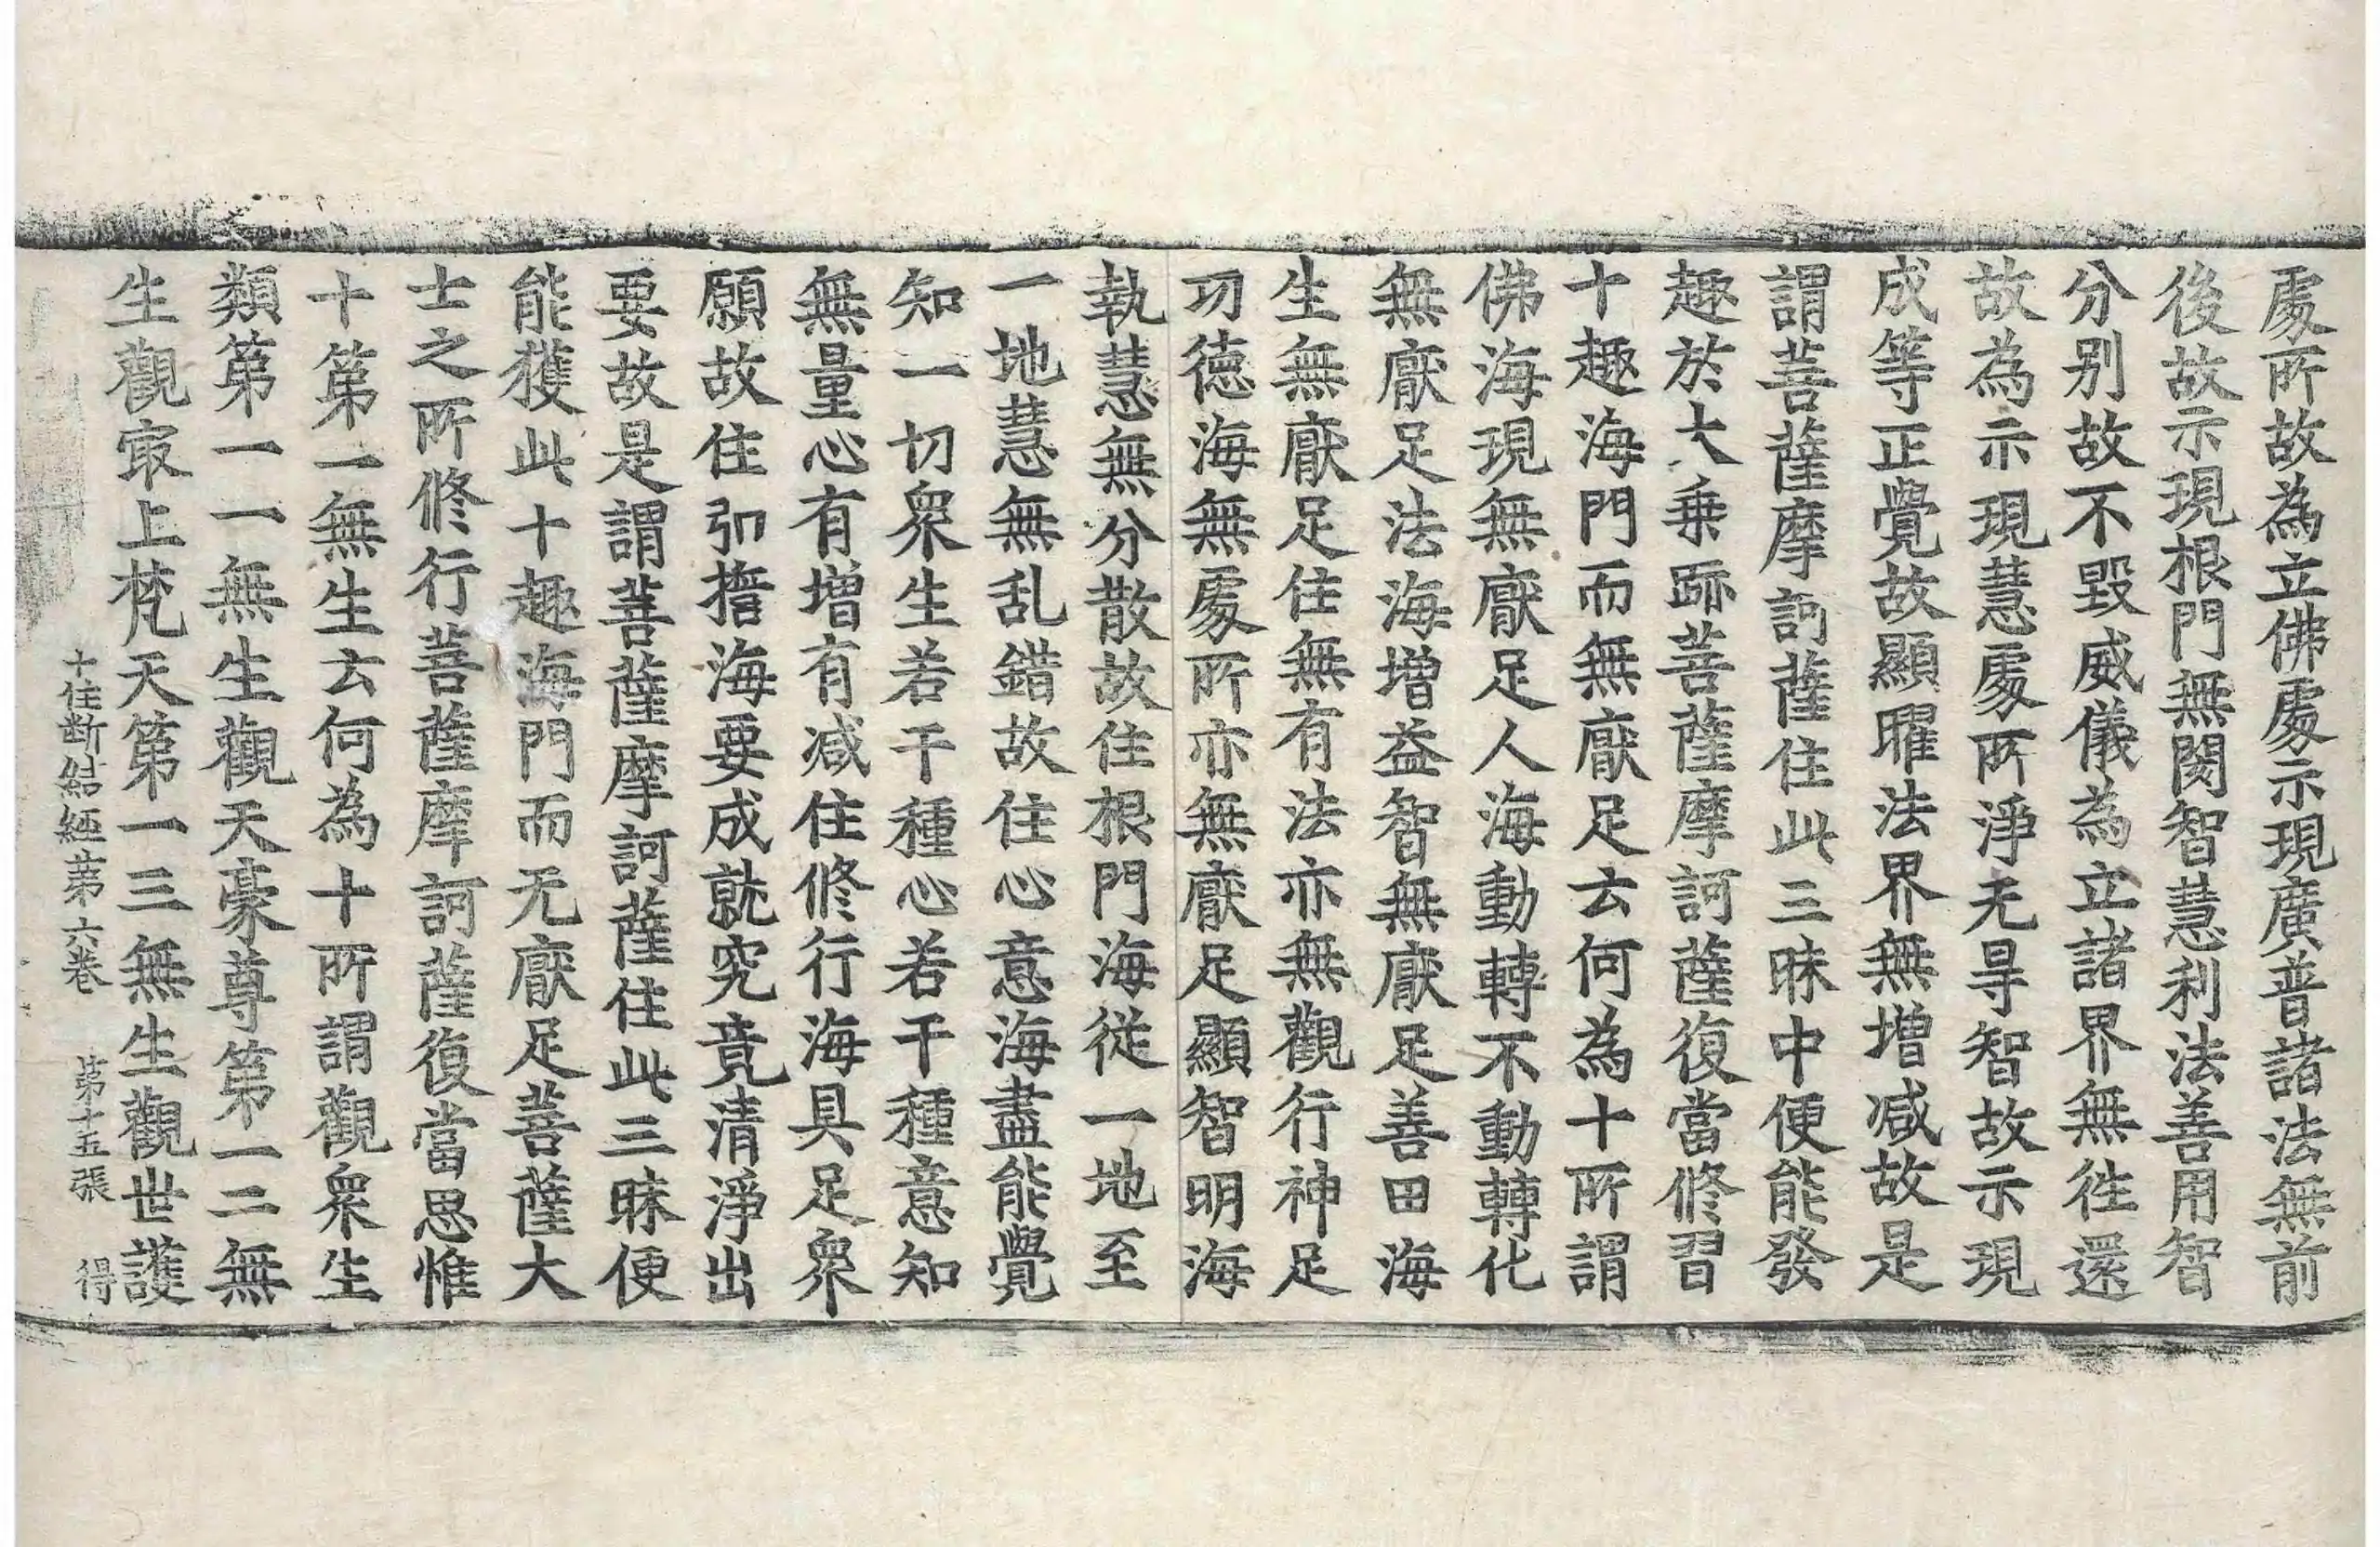 處所故為立佛處示現廣普諸法無前
後故示現根門無閡智慧利法善用智
分别故不毀威儀為立諸界無徃還
故為示現慧處所淨无㝵智故示現
成等正覺故顯曜法界無增减故是
謂菩薩摩訶薩住此三昧中便能發
趣於大乗跡菩薩摩訶薩復當修習
十趣海門而無厭足云何為十所謂
佛海現無厭足人海動轉不動轉化
無厭足法海增益智無厭足善田海
生無厭足住無有法亦無觀行神足
功徳海無處所亦無厭足顯智明海
執慧無分散故住根門海從一地至
一地慧無乱錯故住心意海盡能覺
知一切衆生若干種心若干種意知
無量心有增有减住修行海具足衆
願故住引擔海要成就究竟清淨出
要故是謂菩薩摩訶薩住此三昧便
能獲此十趣海門而无厭足菩薩大
士之所修行菩薩摩訶薩復當思惟
十第一無生云何為十所謂觀衆生
類第一一無生觀天豪尊第一二無
生觀㝡上梵天第一三無生觀世護
十住断結経第六卷 第十五張 得